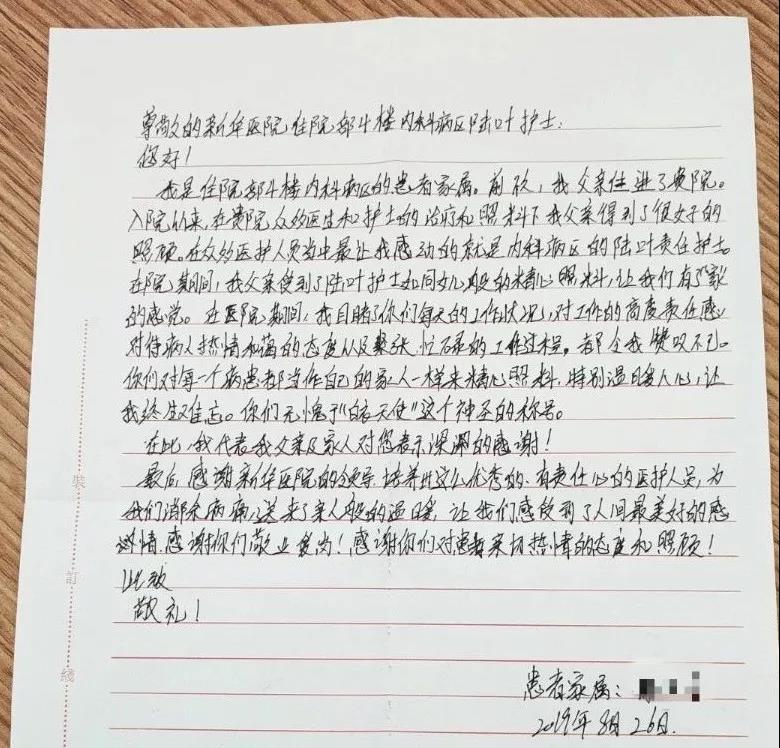 尊敬的新华医院住院部斗楼内科病区陆叶护士：
您好！
我是住院部斗楼内科病区的患者家属。前段，我父亲住进了贵院。
入院以来，在贵院众多医生和护士的治疗和照料下我父亲得到了很好的
照顾。在众多医护人员当中最让我感动的就是内科病区的陆叶责任护士。
在院期间，我父亲受到了陆叶护士如同女儿般的精心照料，让我们有了家
的感觉。在医院期间，我目睹了你们每天的工作状况，对工作的高度责任感，
对待病人热情和蔼的态度以及紧张、忙碌的工作过程，都令我赞叹不已。
你们对每一个病患都当作自己的家人一样来精心照料，特别温暖人心，让
我终生难忘。你们无愧于“白衣天使”这个神圣的称号。
在此，我代表我父亲及家人对您表示深深的感谢！
最后，感谢新华医院的领导培养出这么优秀的、有责任心的医护人员，为
我们消除病痛，送来了亲人般的温暖，让我们感受到了人间最美好的感
激情，感谢你们敬业爱岗！感谢你们对患者亲切热情的态度和照顾！
此致
敬礼！
患者家属：
2019年8月26日.
装
訂
綫